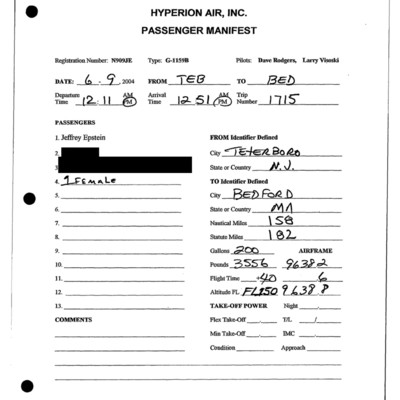 HYPERION AIR, INC.
PASSENGER MANIFEST
Registration Number: N909JE Type: G-1159B Pilots: Dave Rodgers, Larry Visoski
DATE: 6-9, 2004 FROM TEB TO BED
Departure Time 12:11 AM PM Arrival Time 12:51 AM PM Trip Number 1715
PASSENGERS
1. Jeffrey Epstein FROM Identifier Defined
2. City TETERBORO
3. State or Country N.J.
4. 1 Female TO Identifier Defined
5. City BEDFORD
6. State or Country MA
7. Nautical Miles 158
8. Statute Miles 182
9. Gallons 200 AIRFRAME
10. Pounds 3556 9638 2
11. Flight Time +40 6
12. Altitude FL FL150 9638 8
13. TAKE-OFF POWER Night
COMMENTS Flex Take-Off T/L /
Min Take-Off IMC
Condition Approach